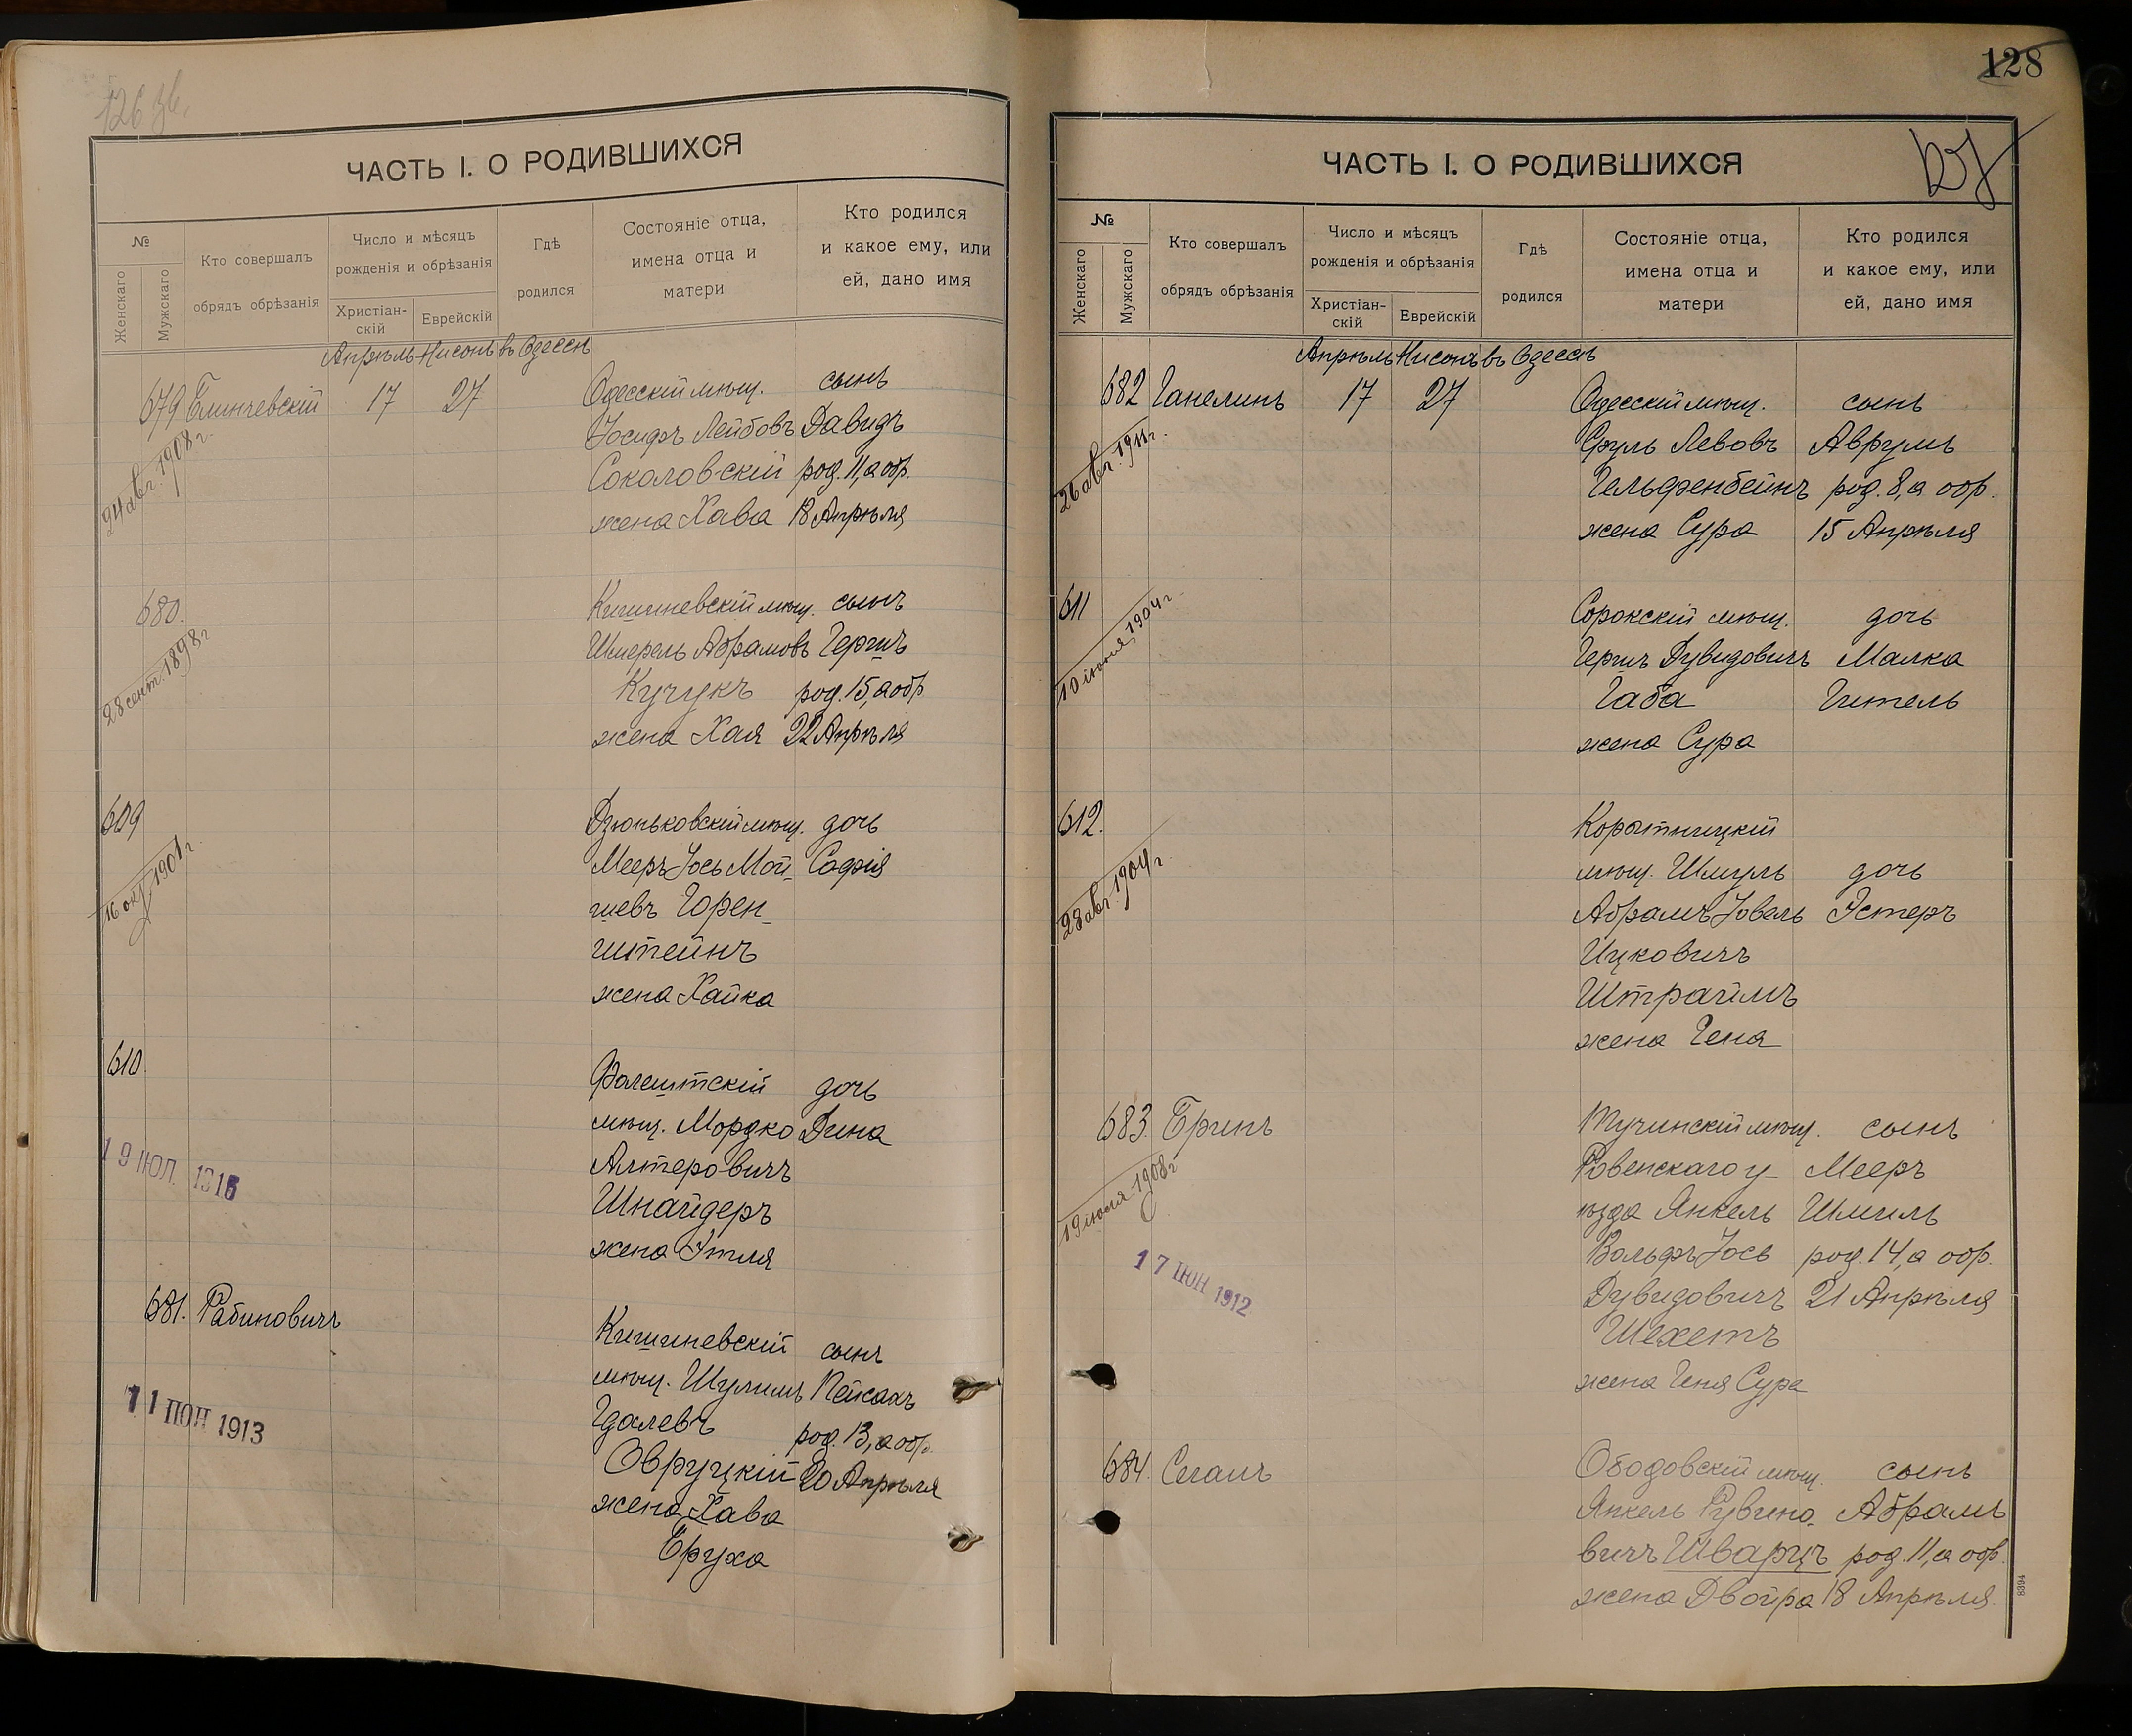 126 зв.
ЧАСТЬ I. О РОДИВШИХСЯ
№
Женскаго
Мужскаго
Кто совершалъ
обрядъ обрѣзанія
Число и мѣсяцъ
рожденія и обрѣзанія
Христіан-
скій
Еврейскій
Гдѣ
родился
Состояніе отца,
имена отца и
матери
Кто родился
и какое ему, или
ей, дано имя
Апрѣль Нисонъ въ Одессѣ
679 Блинчевскій 17 27 Одесскій мѣщ. сынъ
Іосифъ Лейбовъ Давидъ
24 авг. 1908 г. Соколовскій род. 11, а обр.
жена Хава 18 Апрѣля
680. Кишиневскій мѣщ. сынъ
Шмерель Абрамовъ Гершъ
28 сент. 1898 г. Кучукъ род. 15, а обр
жена Хая 22 Апрѣля
609 Дзюньковскій мѣщ. дочь
Мееръ Іось Мой- Софія
16 окт. 1901 г. шевъ Горен-
штейнъ
жена Хайка
610. Фалештскій дочь
мѣщ. Мордко Дина
19 ІЮЛ. 1916 Алтеровичъ
Шнайдеръ
жена Этля
681. Рабиновичъ Кишиневскій сынъ
мѣщ. Шулимъ Пейсахъ
11 ІЮН 1913 Гдалевъ род. 13, а обр.
Овруцкій 20 Апрѣля
жена Хава
Еруха
128
127
ЧАСТЬ I. О РОДИВШИХСЯ
№
Женскаго
Мужскаго
Кто совершалъ
обрядъ обрѣзанія
Число и мѣсяцъ
рожденія и обрѣзанія
Христіан-
скій
Еврейскій
Гдѣ
родился
Состояніе отца,
имена отца и
матери
Кто родился
и какое ему, или
ей, дано имя
Апрѣль Нисонъ въ Одессѣ
682 Ганелинъ 17 27 Одесскій мѣщ. сынъ
Сруль Левовъ Аврумъ
26 авг. 1911 г. Гельфенбейнъ род. 8, а обр.
жена Сура 15 Апрѣля
611 Сорокскій мѣщ. дочь
Гершъ Дувидовичъ Малка
10 іюня 1904 г. Габа Гитель
жена Сура
612. Корытницкій
мѣщ. Шмуль дочь
28 авг. 1904 г. Абрамъ Іовель Эстеръ
Ицковичъ
Штраймъ
жена Геня
683. Еринъ Тучинскій мѣщ. сынъ
Ровенскаго у- Мееръ
19 іюля 1908 г ѣзда Янкель Шмиль
Вольфъ Іось род. 14, а обр.
17 ІЮН 1912 Дувидовичъ 21 Апрѣля
Шехетъ
жена Геня Сура
684. Сегалъ Ободовскій мѣщ. сынъ
Янкель Рувино- Абрамъ
вичъ Шварцъ род. 11, а обр.
жена Двойра 18 Апрѣля.
8394